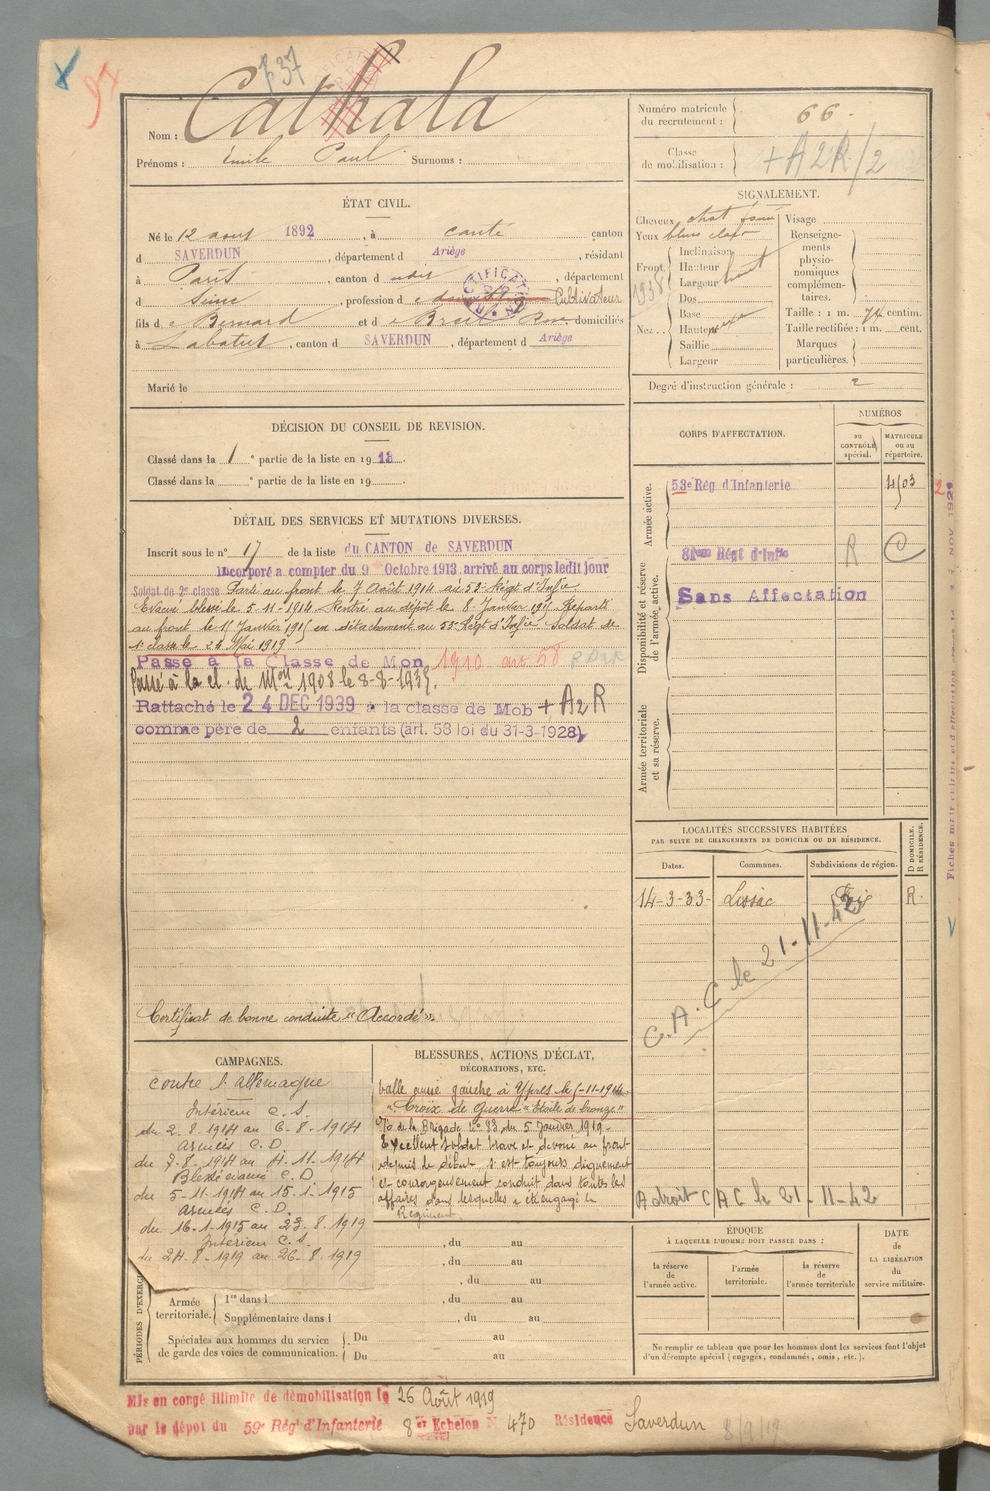 737
Nom : Cathala
Prénoms : émile Paul Surnoms :
Numéro matricule du recrutement : 66.
Classe de mobilisation : + A2R/2
ÉTAT CIVIL.
Né le 12 aout 1892, à canté canton
d SAVERDUN, département d Ariège, résidant
à Paris, canton d udit, département
d Seine, profession d e Cultivateur
fils d e Bernard et d e domiciliés
à Labatut, canton d SAVERDUN, département d Ariège
Marié le
SIGNALEMENT.
Cheveux chat foncé
Yeux bleu clair
Front
Inclinaison
Hauteur
Largeur
Nez
Dos
Base
Hauteur
Saillie
Largeur
1938
Visage
Renseignements physionomiques complémentaires.
Taille : 1 m. 74 centim.
Taille rectifiée : 1 m. cent.
Marques particulières.
Degré d'instruction générale : 2
DÉCISION DU CONSEIL DE REVISION.
Classé dans la 1e partie de la liste en 1913.
Classé dans la e partie de la liste en 19
DÉTAIL DES SERVICES ET MUTATIONS DIVERSES.
Inscrit sous le n° 17 de la liste du CANTON de SAVERDUN
Incorporé à compter du 9 Octobre 1913 arrivé au corps ledit jour
Soldat de 2e classe Parti au front le 7 Août 1914 au 53e Régt d'Infie
Evacué blessé le 5-11-1914 Rentré au dépôt le 8 Janvier 1915 Reparti
au front le 15 Janvier 1915 en détachement au 53e Régt d'Infie Soldat de
1e classe le 24 Mai 1917
Passé à la Classe de Mon 1910 art 58
Passé à la cl. de Mon 1908 le 8-8-1935.
Rattaché le 24 DEC 1939 à la classe de Mob + A2R
comme père de 2 enfants (art. 58 loi du 31-3-1928)
Certificat de bonne conduite "Accordé".
CORPS D'AFFECTATION.
NUMÉROS
au CONTRÔLE spécial.
MATRICULE ou au répertoire.
Armée active.
53e Rég d'Infanterie 4503
Disponibilité et réserve de l'armée active.
81eme Régt d'Infie R C
Sans Affectation
Armée territoriale et sa réserve.
LOCALITÉS SUCCESSIVES HABITÉES
PAR SUITE DE CHANGEMENTS DE DOMICILE OU DE RÉSIDENCE.
Dates. Communes. Subdivisions de région. D DOMICILE. R RÉSIDENCE.
14-3-33- Lissac Foix R.
C.A.C le 21-11-42
A droit C A C le 21-11-42
CAMPAGNES.
contre l'allemagne
Intérieur C.S.
du 2.8.1914 au 6.8.1914
armées C.D.
du 7.8.1914 au 4.11.1914
Blessé évacué C.D
du 5-11-1914 au 15.1.1915
armées C.D.
du 16.1.1915 au 23.8.1919
Intérieur C.S.
du 24.8.1919 au 26.8.1919
BLESSURES, ACTIONS D'ÉCLAT,
DÉCORATIONS, ETC.
balle main gauche à Ypres le 5-11-1914
"Croix de Guerre" "Etoile de bronze"
O/de la Brigade n° 83 du 5 Janvier 1919-
Excellent soldat brave et dévoué au front
depuis le début, s'est toujours dignement
et courageusement conduit dans toutes les
affaires dans lesquelles a été engagé le
Régiment
PÉRIODES D'EXERCI
, du au
, du au
, du au
Armée territoriale. 1re dans l , du au
Supplémentaire dans l , du au
Spéciales aux hommes du service de garde des voies de communication. Du au
Du au
ÉPOQUE
À LAQUELLE L'HOMME DOIT PASSER DANS :
la réserve de l'armée active.
l'armée territoriale.
la réserve de l'armée territoriale
DATE de LA LIBÉRATION du service militaire.
Ne remplir ce tableau que pour les hommes dont les services font l'objet
d'un décompte spécial (engagés, condamnés, omis, etc.).
Mis en congé illimité de démobilisation le 26 Août 1919
par le dépôt du 59e Rég' d'Infanterie 8 er Echelon N 470 Résidence Saverdun 8/9/19